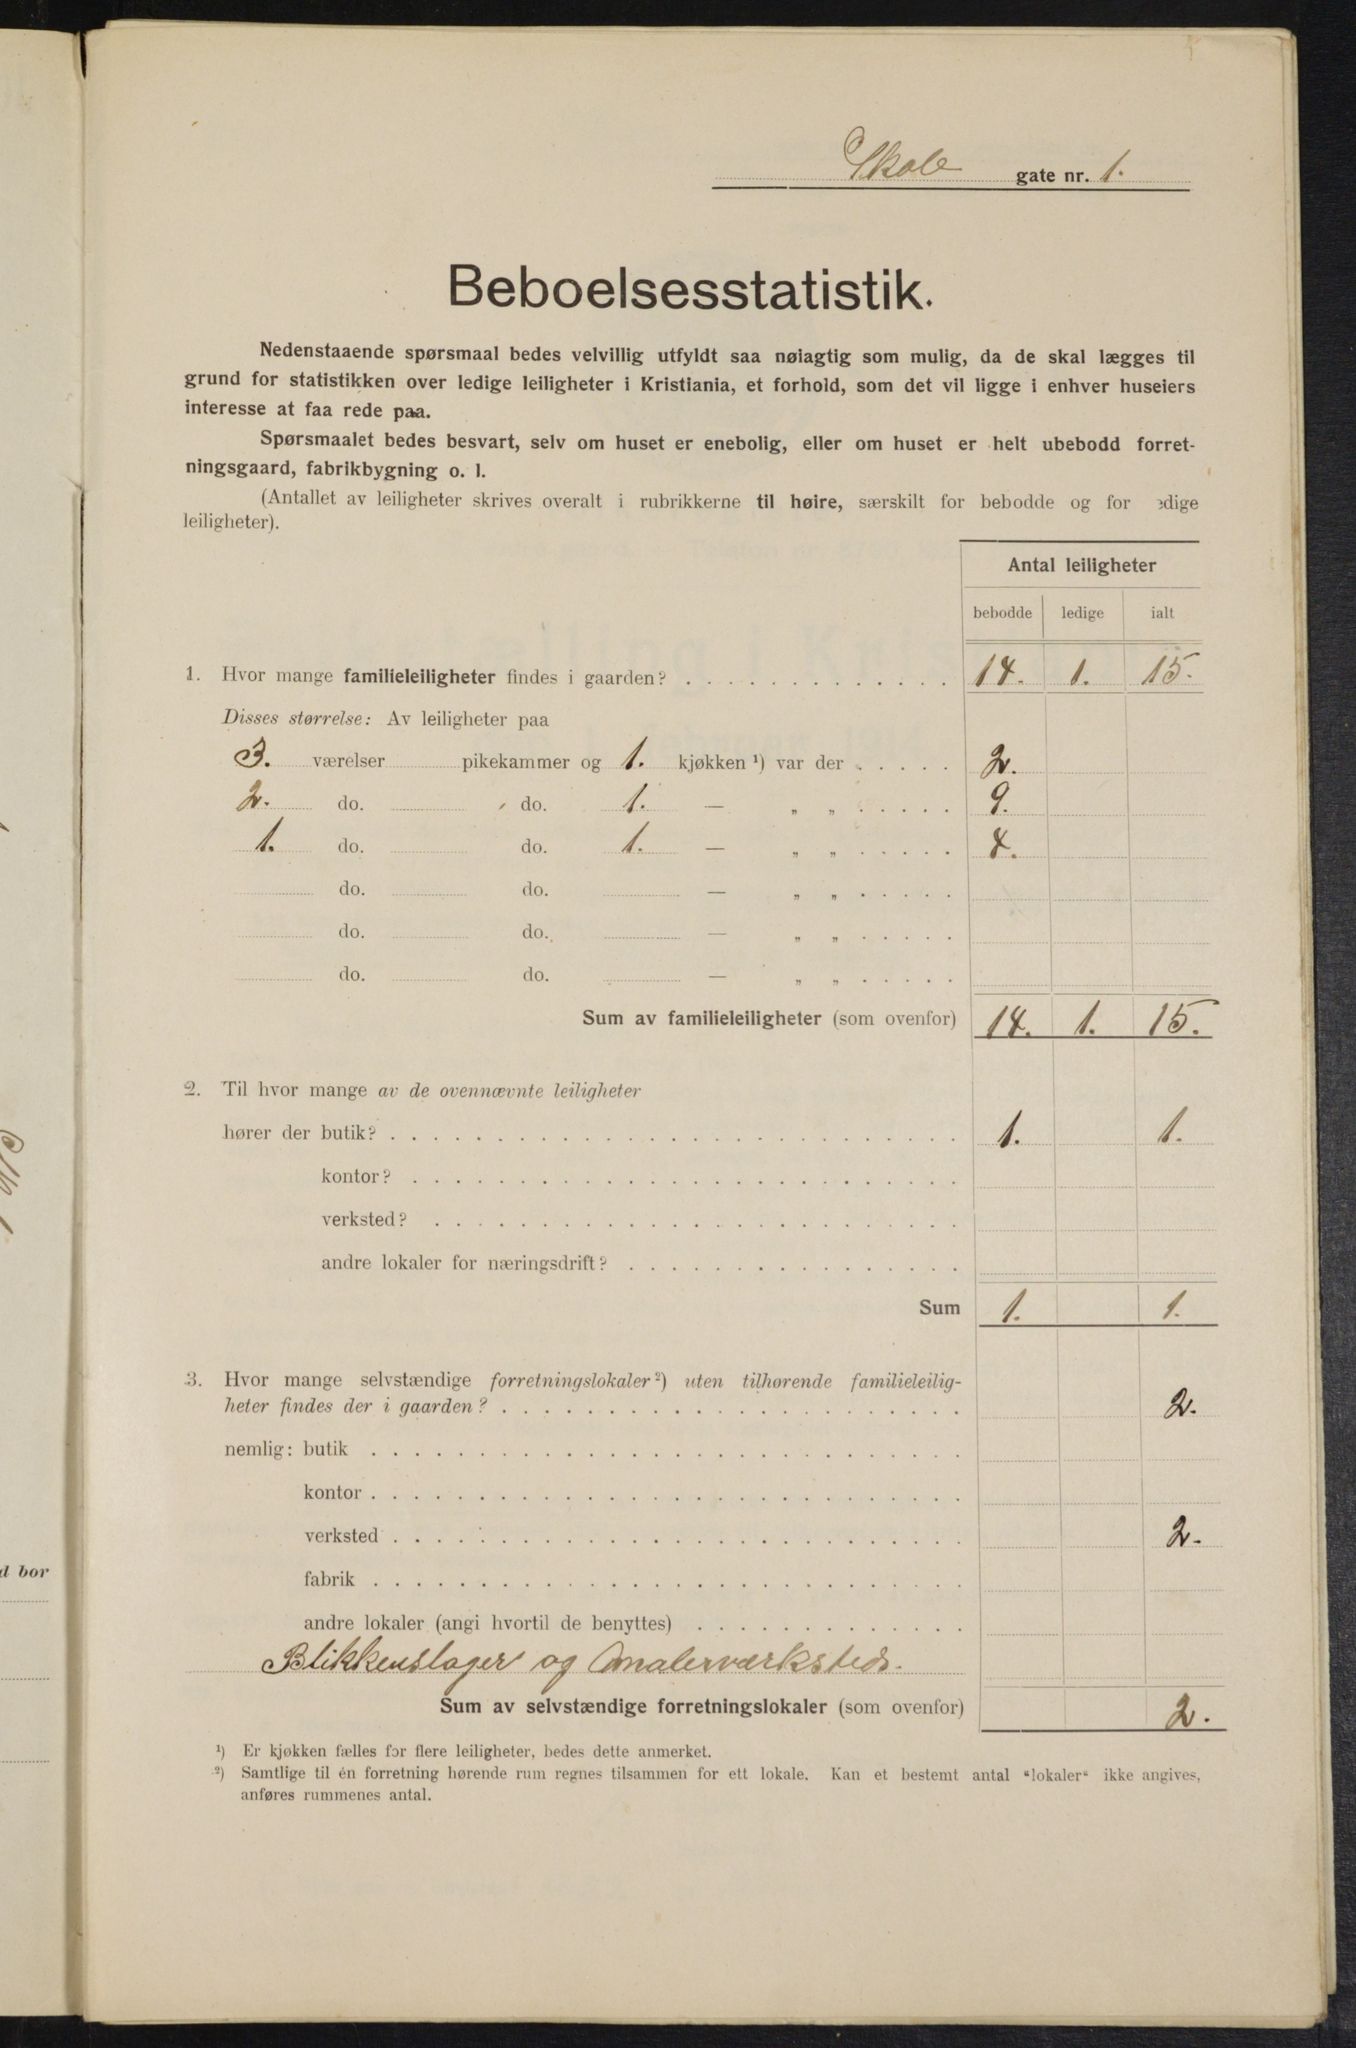 Skole gate nr. 1.
Beboelsesstatistik.
Nedenstaaende spørsmaal bedes velvillig utfyldt saa nøiagtig som mulig, da de skal lægges til
grund for statistikken over ledige leiligheter i Kristiania, et forhold, som det vil ligge i enhver huseiers
interesse at faa rede paa.
Spørsmaalet bedes besvart, selv om huset er enebolig, eller om huset er helt ubebodd forret-
ningsgaard, fabrikbygning o. l.
(Antallet av leiligheter skrives overalt i rubrikkerne til høire, særskilt for bebodde og for edige
leiligheter).
Antal leiligheter
bebodde ledige ialt
1. Hvor mange familieleiligheter findes i gaarden? 14. 1. 15.
Disses størrelse: Av leiligheter paa
3. værelser pikekammer og 1. kjøkken ¹) var der 2.
2. do. do. 1. — „ „ 9.
1. do. do. 1. — „ „ 4.
do. do. — „ „
do. do. — „ „
do. do. — „ „
Sum av familieleiligheter (som ovenfor) 14. 1. 15.
2. Til hvor mange av de ovennævnte leiligheter
hører der butik? 1. 1.
kontor?
verksted?
andre lokaler for næringsdrift?
Sum 1. 1.
3. Hvor mange selvstændige forretningslokaler ²) uten tilhørende familieleilig-
heter findes der i gaarden? 2.
nemlig: butik
kontor
verksted 2.
fabrik
andre lokaler (angi hvortil de benyttes)
Blikkenslager og Malerværksteds.
Sum av selvstændige forretningslokaler (som ovenfor) 2.
¹) Er kjøkken fælles for flere leiligheter, bedes dette anmerket.
²) Samtlige til én forretning hørende rum regnes tilsammen for ett lokale. Kan et bestemt antal "lokaler" ikke angives,
anføres rummenes antal.
d bor